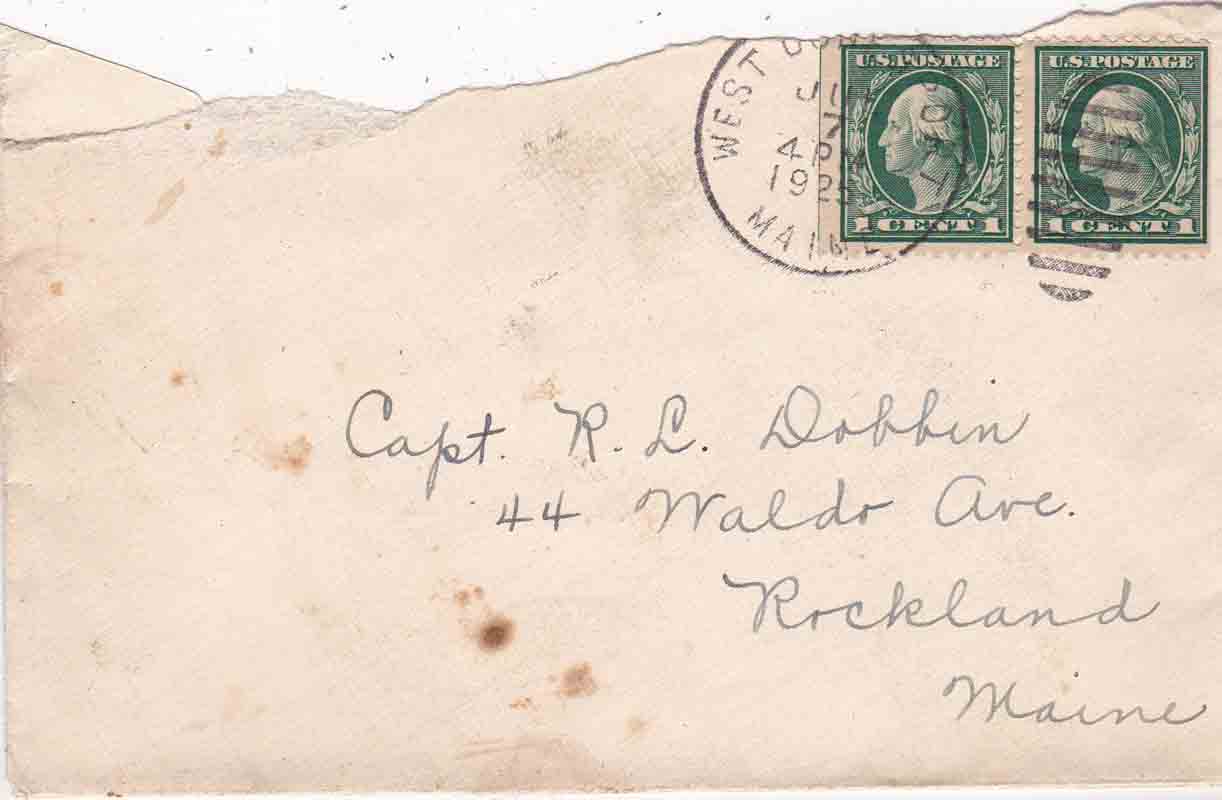 WEST
4 PM
192
MAINE
U.S. POSTAGE
1 CENT 1
U.S. POSTAGE
1 CENT 1
Capt. R. L. Dobbin
44 Waldo Ave.
Rockland
Maine